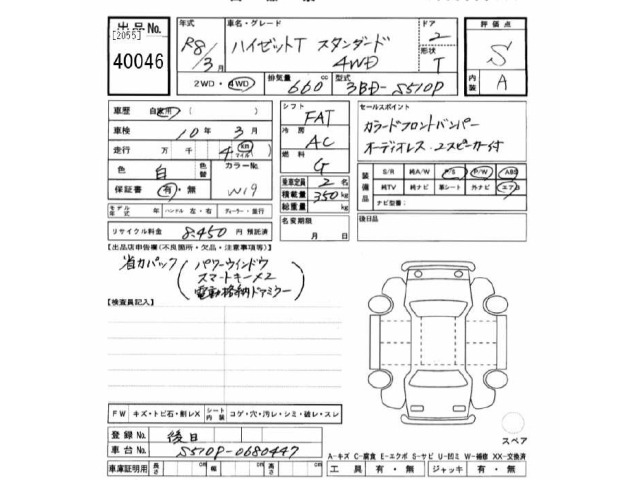 出品No.
[2055]
40046
年式
R8/3月
車名・グレード
ハイゼットT スタンダード
4WD
ドア
2
形状
T
評価点
S
内装
A
2WD・4WD
排気量
660 cc
型式
3BD-S510P
車歴 自家用 ( )
車検 10年 3月
走行 万 千 4 km マイル
色 白 色替
カラーNo.
W19
保証書 有・無
モデル年式 年 ハンドル 左・右 ディーラー・並行
リサイクル料金 8,450 円 預託済
シフト
FAT
冷房
AC
燃料
G
乗車定員 2 名
積載量 350 kg
総重量 kg
名変期限
月 日
セールスポイント
カラードフロントバンパー
オーディオレス・2スピーカー付
装備品
S/R 純A/W P/S P/W ABS
純TV 純ナビ 革シート 外ナビ エアB
ナビ型番:
後日品
【出品店申告欄(不良箇所・欠品・注意事項等)】
省力パック
パワーウインドウ
スマートキー×2
電動格納ドアミラー
【検査員記入】
FW キズ・トビ石・削レX シート内装 コゲ・穴・汚レ・シミ・破レ・スレ
登録No. 後日
車台No. S510P-0680447
車庫証明用 長さ cm 幅 cm 高さ cm
スペア
A-キズ C-腐食 E-エクボ S-サビ U-凹ミ W-補修 XX-交換済
工具 有・無 ジャッキ 有・無